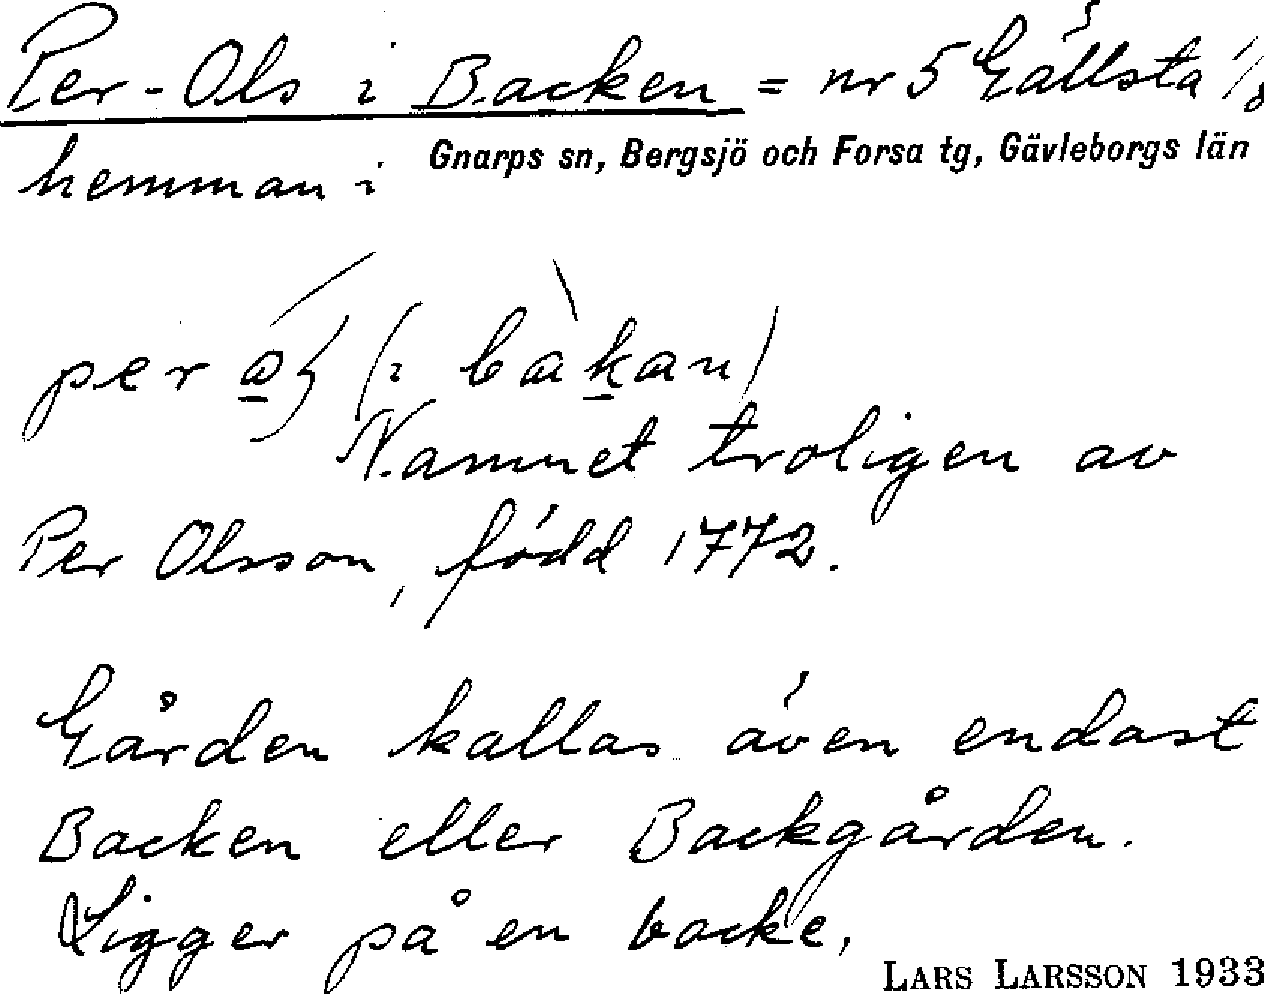 Per-Ols i Backen = nr 5 Gällsta 1/8
hemman i Gnarps sn, Bergsjö och Forsa tg, Gävleborgs län
(i bakan)
Namnet troligen av
Per Olsson, född 1772.
Gården kallas även endast
Backen eller Backgården.
Ligger på en backe,
LARS LARSSON 1933